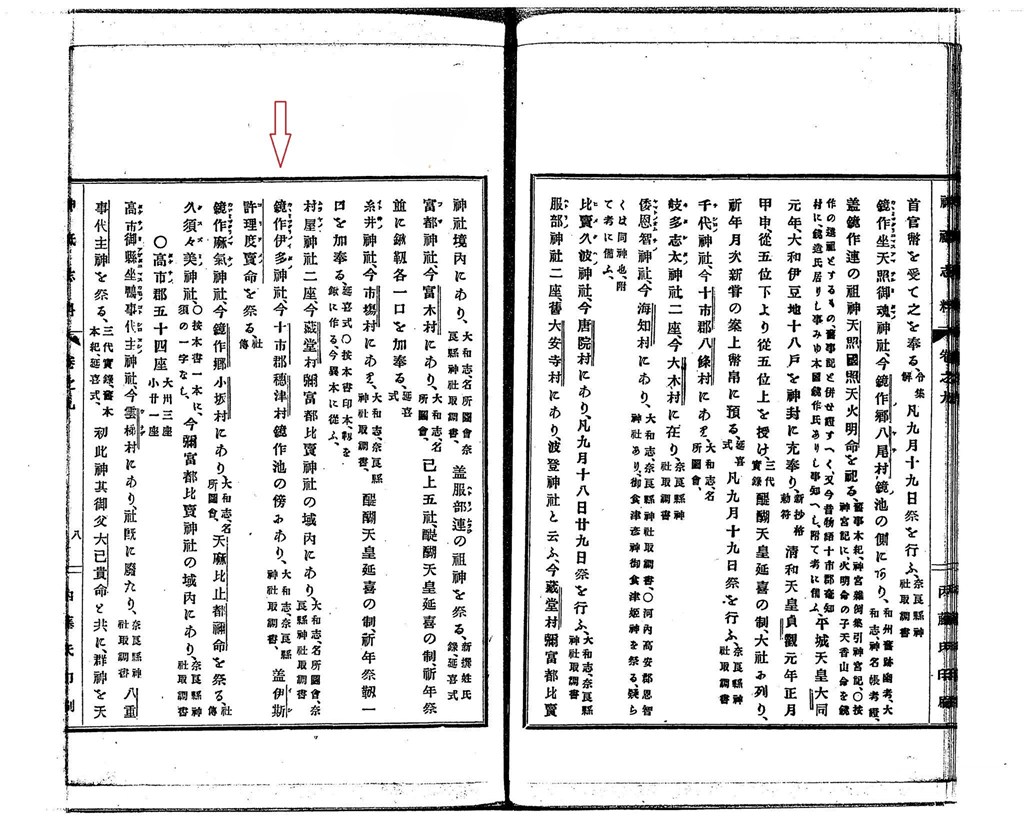 神祇志料
卷之九
首官幣を受て之を奉る、令集解 凡九月十九日祭を行ふ、奈良縣神社取調書
鏡作坐天照御魂神社、今鏡作郷八尾村鏡池の側にあり、和州舊跡幽考、大和志、神名帳考證、
蓋鏡作連の祖神天照國照天火明命を祀る、舊事本紀、神宮雜例集引神宮記、〇按神宮記に、火明命の子天香山命を鏡
作の遠祖とするもの、舊事記と併せ證すへく、又今昔物語十市郡菴知村に鏡造氏居りし事みゆ、本國鏡作氏ありし事知へし、附て考に備ふ、平城天皇大同
元年、大和伊豆地十八戸を神封に充奉り、新抄格勅符 清和天皇貞觀元年正月
甲申、從五位下より從五位上を授け、三代實錄 醍醐天皇延喜の制大社に列り、
祈年月次新嘗の案上幣帛に預る、延喜式 凡九月十九日祭を行ふ、奈良縣神社取調書
千代神社、今十市郡八條村にあり、大和志、名所圖會、
岐多志太神社二座、今大木村に在り、奈良縣神社取調書
倭恩智神社、今海知村にあり、大和志、奈良縣神社取調書〇河內高安郡恩智神社あり、御食津彥神御食津姬神を祭る、疑ら
くは同神也、附て考に備ふ、
比賣久波神社、今唐院村にあり、凡九月十八日廿九日祭を行ふ、大和志、奈良縣神社取調書
服部神社二座、舊大安寺村にあり、波登神社と云ふ、今藏堂村彌富都比賣
神社境內にあり、大和志、名所圖會奈良縣神社取調書、 蓋服部連の祖神を祭る、新撰姓氏錄、延喜式
富都神社、今富木村にあり、大和志、名所圖會、 已上五社、醍醐天皇延喜の制、祈年祭
並に鍬靫各一口を加奉る、延喜式
糸井神社、今市塲村にあり、大和志、奈良縣神社取調書、 醍醐天皇延喜の制祈年祭靫一
口を加奉る、延喜式〇按本書印本、靫を鍬に作る、今異本に從ふ、
村屋神社二座、今藏堂村彌富都比賣神社の域內にあり、大和志、名所圖會、奈良縣神社取調書
鏡作伊多神社、今十市郡穗津村鏡作池の傍にあり、大和志、奈良縣神社取調書、 蓋伊斯
許理度賣命を祭る 社傳
鏡作麻氣神社、今鏡作郷小坂村にあり、大和志、名所圖會、 天麻比止都禰命を祭る、社傳
久須々美神社、〇按本書一本に、須の一字なし、 今彌富都比賣神社の域內にあり、奈良縣神社取調書
〇高市郡五十四座 大卅三座 小廿一座
高市御縣坐鴨事代主神社、今雲梯村にあり、社既に廢たり、奈良縣神社取調書 八重
事代主神を祭る、三代實錄、舊事本紀、延喜式、 初此神其御父大己貴命と共に、群神を天
神祇志料
卷之九
八